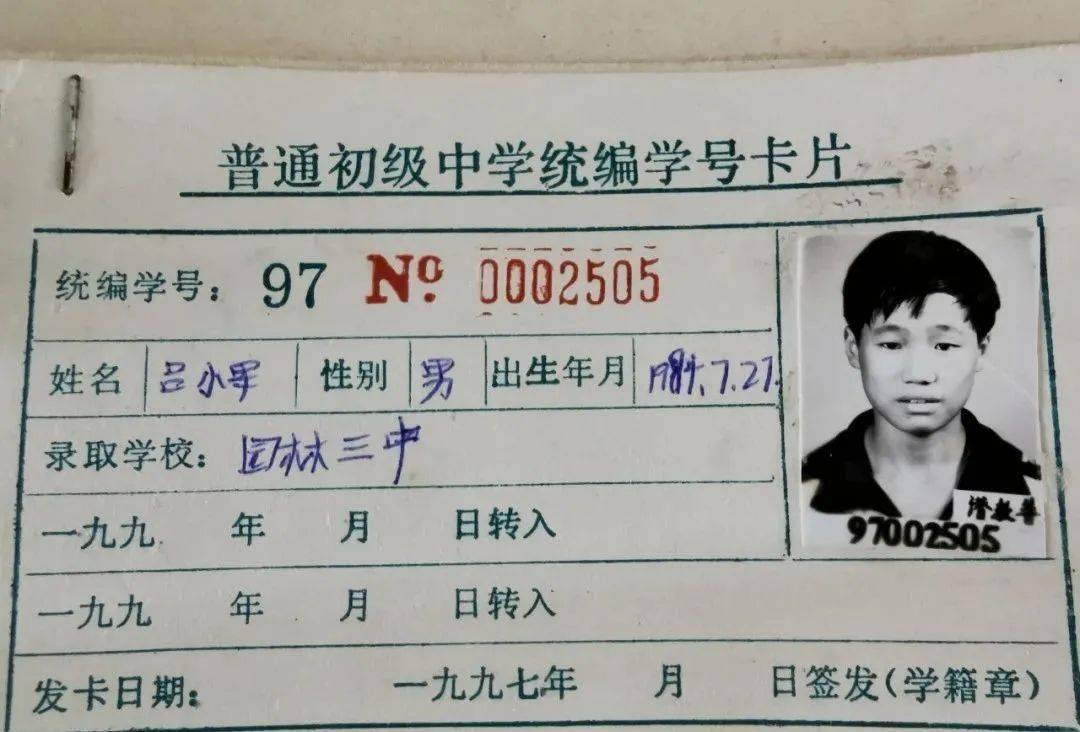 普通初级中学统编学号卡片
统编学号: 97 Nº 0002505
姓名 吕小军 性别 男 出生年月 1984.7.27.
录取学校: 园林三中
一九九 年 月 日转入
一九九 年 月 日转入
发卡日期: 一九九七年 月 日签发(学籍章)
潜教普
97002505